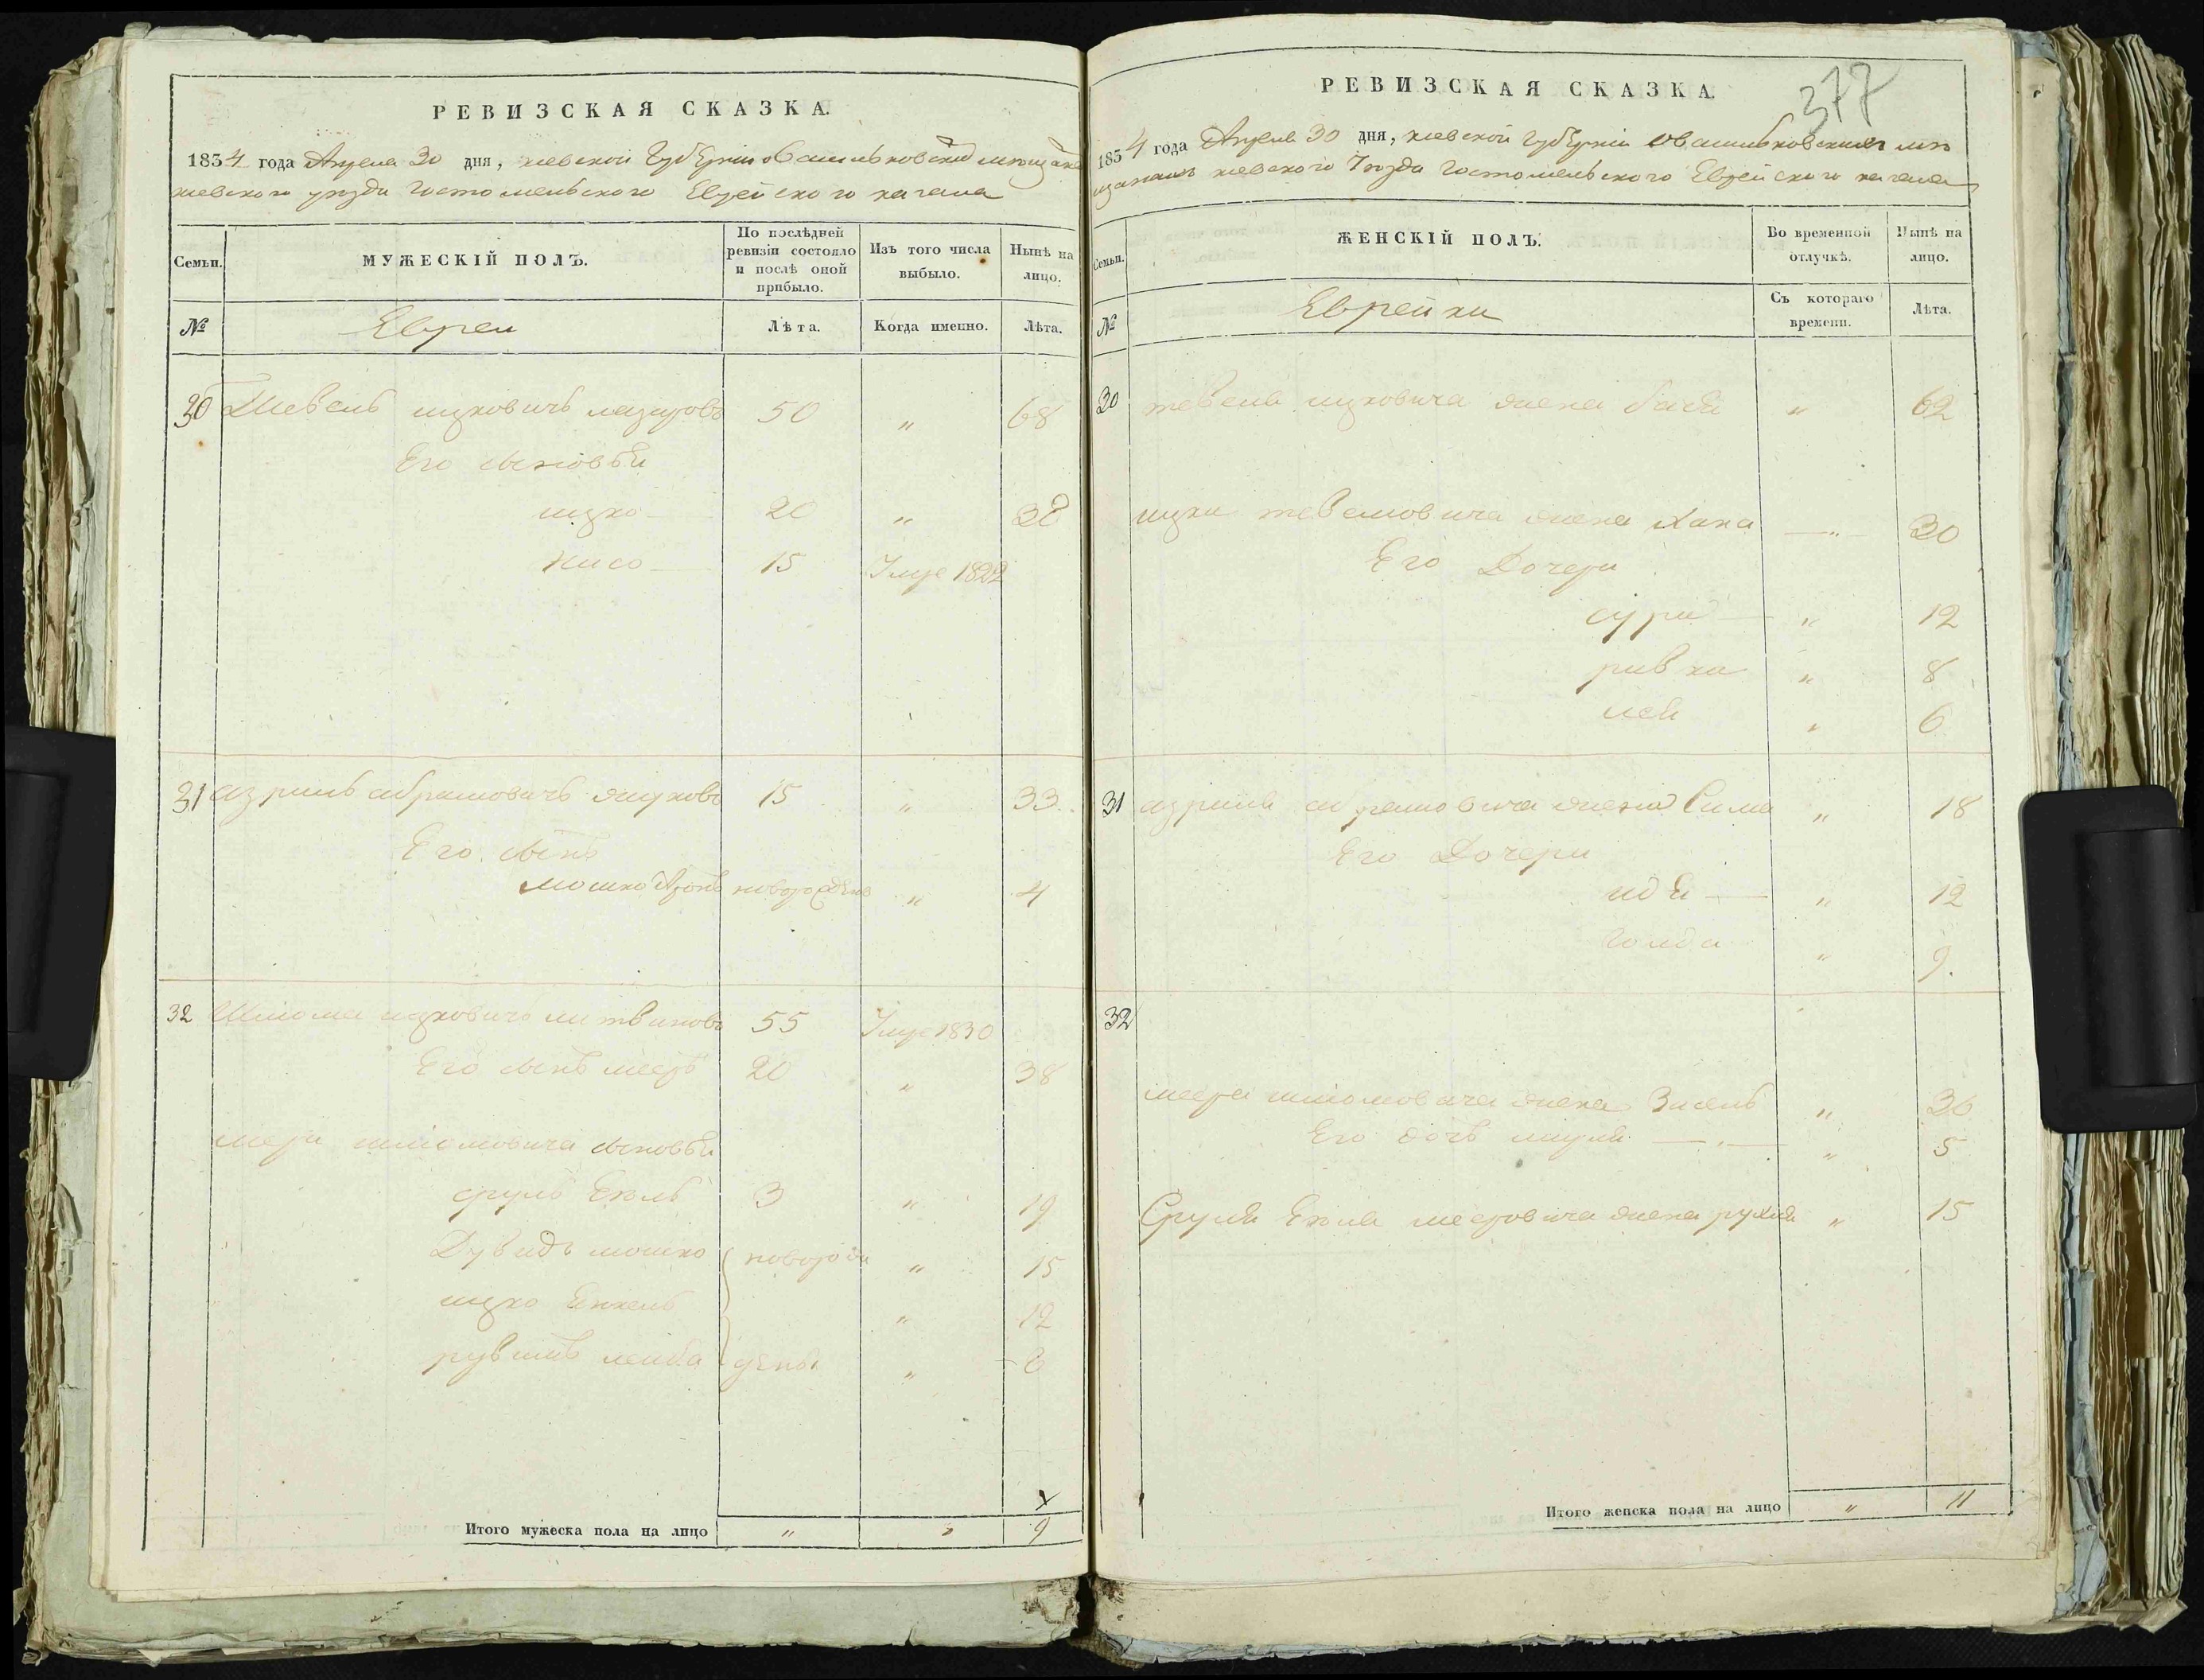 РЕВИЗСКАЯ СКАЗКА.
1834 года Апреля 30 дня, киевской Губернии о васильковский мещанах
киевского уезда гостомельского Еврейского кагала
Семьи.
МУЖЕСКІЙ ПОЛЪ.
По послѣдней ревизіи состояло и послѣ оной прибыло.
Изъ того числа выбыло.
Нынѣ на лицо.
№
Евреи
Лѣта.
Когда именно.
Лѣта.
30 ицковичъ лазаровъ 50 " 68
Его сыновья
ицко 20 " 38
15 Умре 1822
31 азриль абрамовичъ 15 " 33
Его сынъ
мошко " 4
32 Шлиома ицковичъ литвиновъ 55 Умре 1830
Его сынъ мееръ 20 " 38
меера шлиомовича сыновья
сруль Екель 3 " 19
Дувидъ мошко новорож " 15
ицко Енкель " 12
рувинъ лейба денъ " 8
Итого мужеска пола на лицо " " 9
РЕВИЗСКАЯ СКАЗКА.
377
1834 года Апреля 30 дня, киевской Губернии о васильковских ме
щанах киевского Уезда гостомельского Еврейского кагала
Семьи.
ЖЕНСКІЙ ПОЛЪ.
Во временной отлучкѣ.
Нынѣ на лицо.
№
Еврейки
Съ котораго времени.
Лѣта.
30 ицковича жена " 62
ицки жена хана " 30
Его Дочери
сура " 12
ривка " 8
лея " 6
31 азриля абрамовича жена Сима " 18
Его Дочери
идя " 12
голда " 9.
32
меера шлиомовича жена Зисель " 36
Его дочь " 5
Сруля Екеля мееровича жена рухля " 15
Итого женска пола на лицо " 11